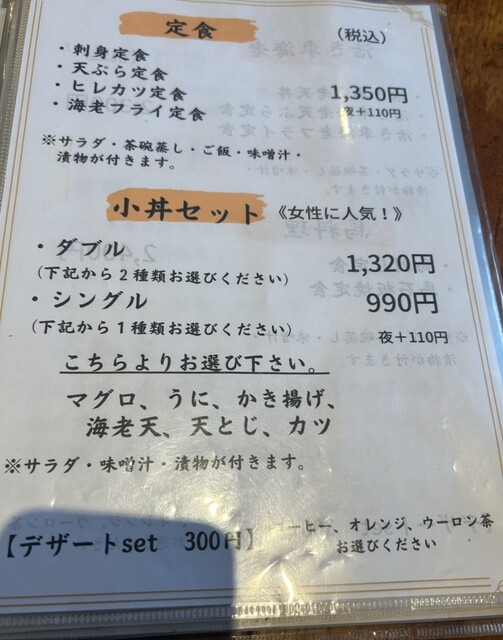 定食 （税込）
・刺身定食
・天ぷら定食
・ヒレカツ定食 1,350円
・海老フライ定食 夜＋110円
※サラダ・茶碗蒸し・ご飯・味噌汁・
漬物が付きます。
小丼セット 《女性に人気！》
・ダブル 1,320円
（下記から２種類お選びください）
・シングル 990円
（下記から１種類お選びください） 夜＋110円
こちらよりお選び下さい。
マグロ、うに、かき揚げ、
海老天、天とじ、カツ
※サラダ・味噌汁・漬物が付きます。
ーヒー、オレンジ、ウーロン茶
【デザートset 300円】 お選びください